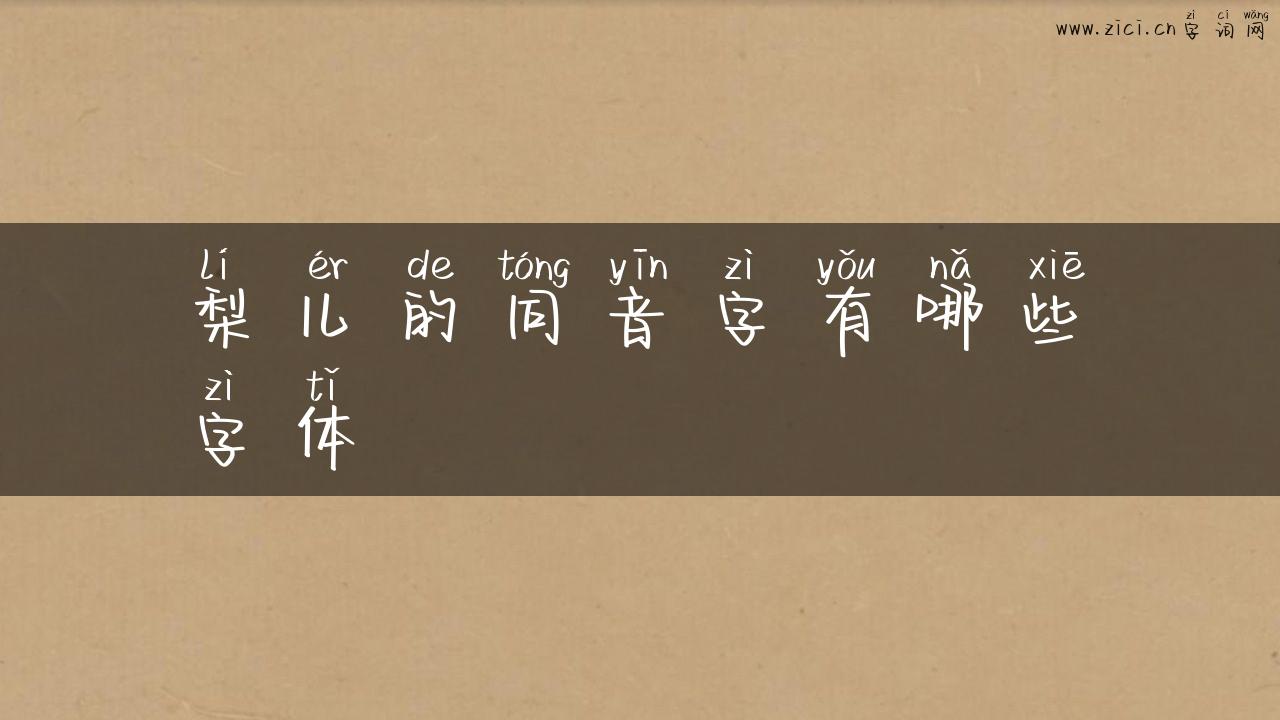 zì cí wǎng
www.zici.cn 字词网
lí ér de tóng yīn zì yǒu nǎ xiē
梨儿的同音字有哪些
zì tǐ
字体